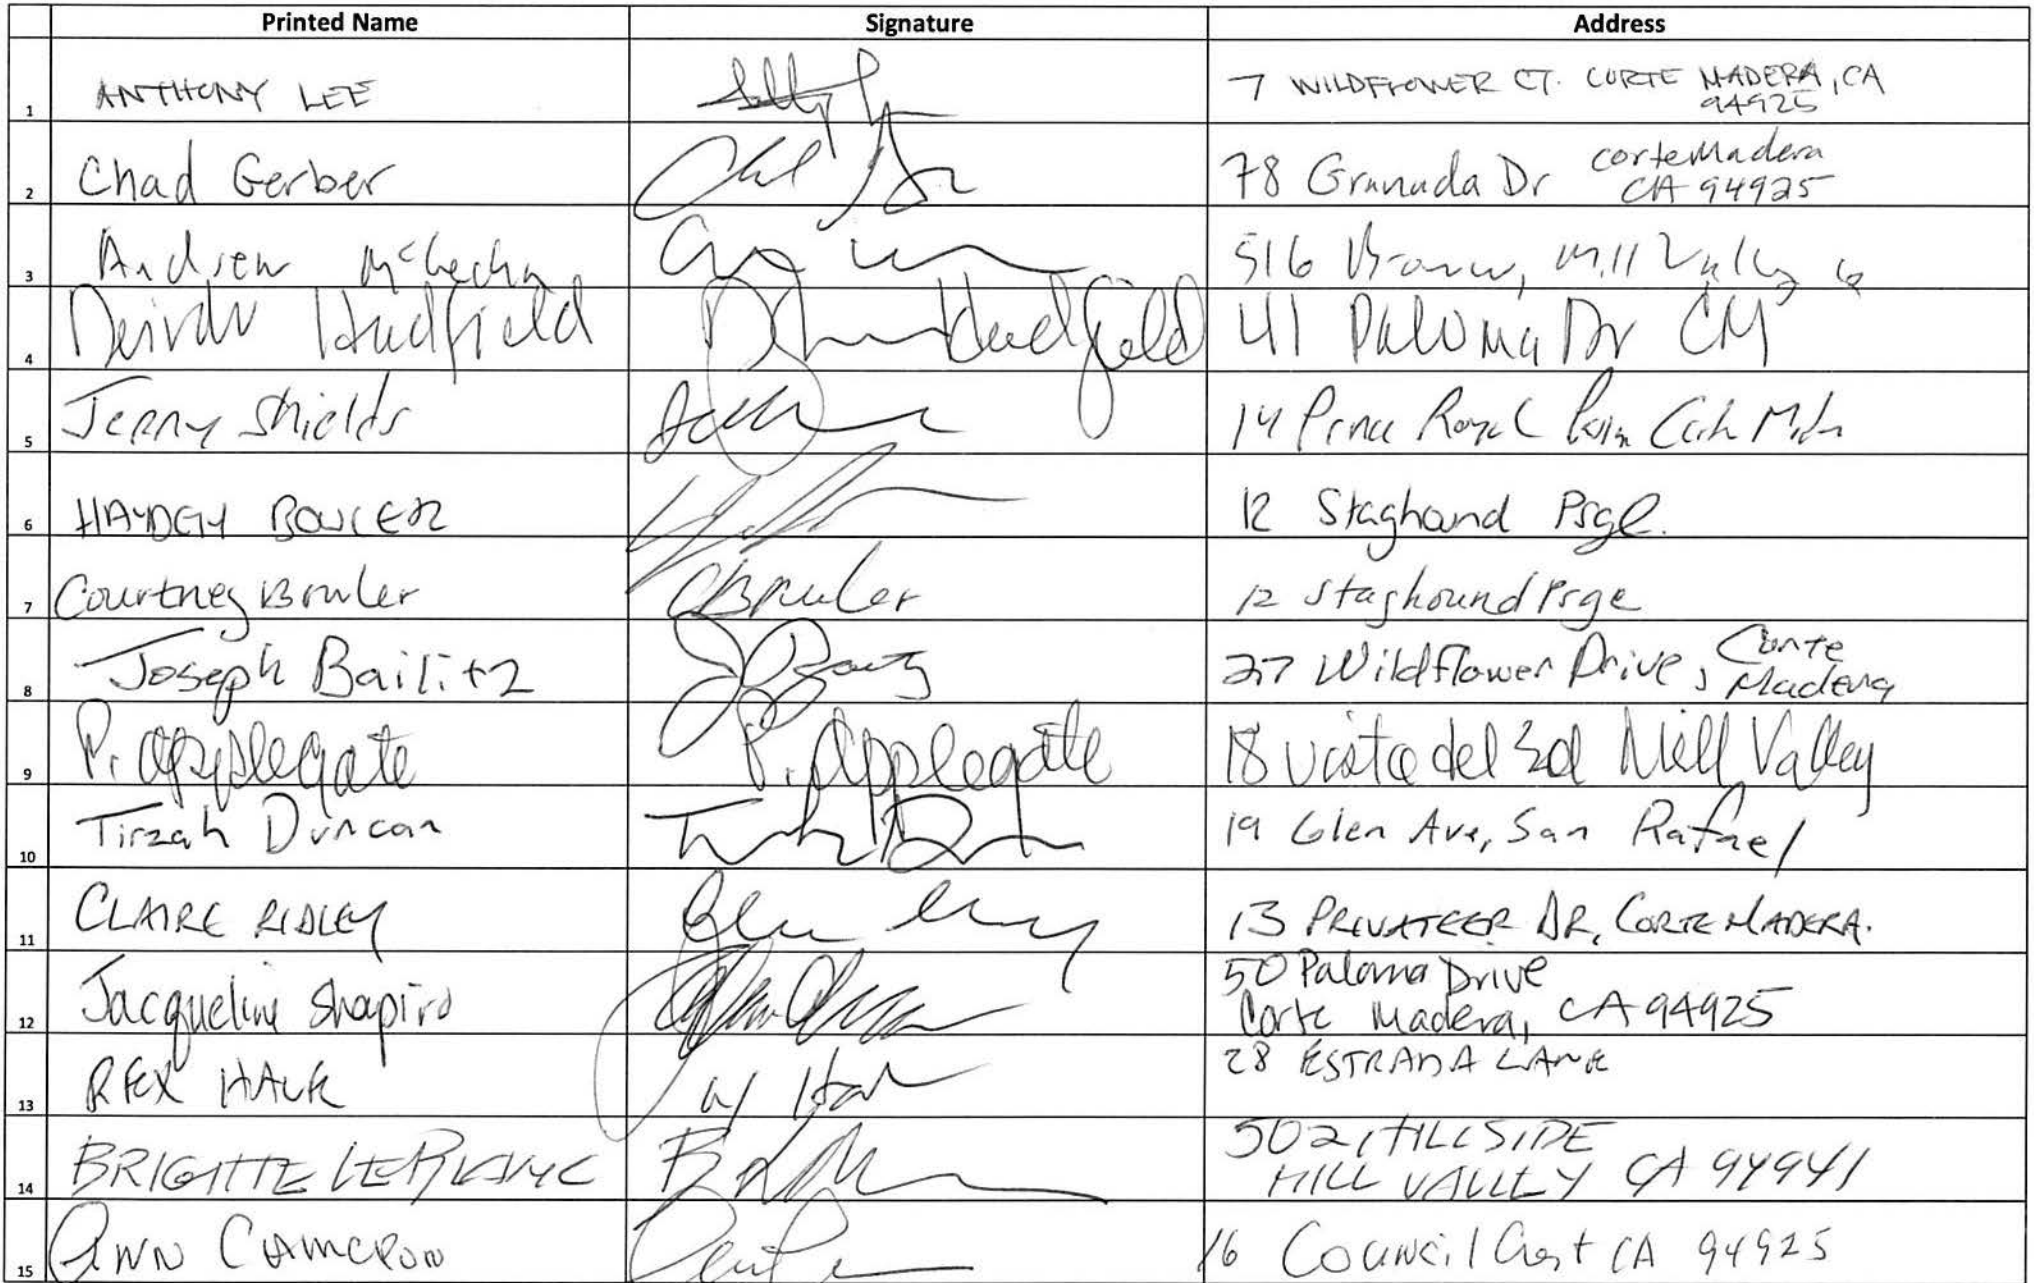 Printed Name Signature Address
1 ANTHONY LEE 7 WILDFLOWER CT. CORTE MADERA, CA
94925
2 Chad Gerber 78 Granada Dr Corte Madera
CA 94925
3 Andrew 516 Mill Valley
4 Deirdr Hadfield Hadfield 41 Paloma Dr CM
5 Jerry Shields 14 Prince Royal
6 HAYDEN BOWLER 12 Staghound Psge.
7 Courtney Bowler CBowler 12 Staghound Psge
8 Joseph Bailitz 27 Wildflower Drive, Corte
Madera
9 P. Applegate P. Applegate 18 Vista del Sol Mill Valley
10 Tirzah Duncan 19 Glen Ave, San Rafael
11 CLAIRE RIDLEY 13 PRIVATEER DR, CORTE MADERA.
12 Jacqueline Shapiro 50 Paloma Drive
Corte Madera, CA 94925
13 REX 28 ESTRADA LANE
14 BRIGITTE LEBLANC 502 HILLSIDE
MILL VALLEY CA 94941
15 Ann Cameron 16 Council Crest CA 94925